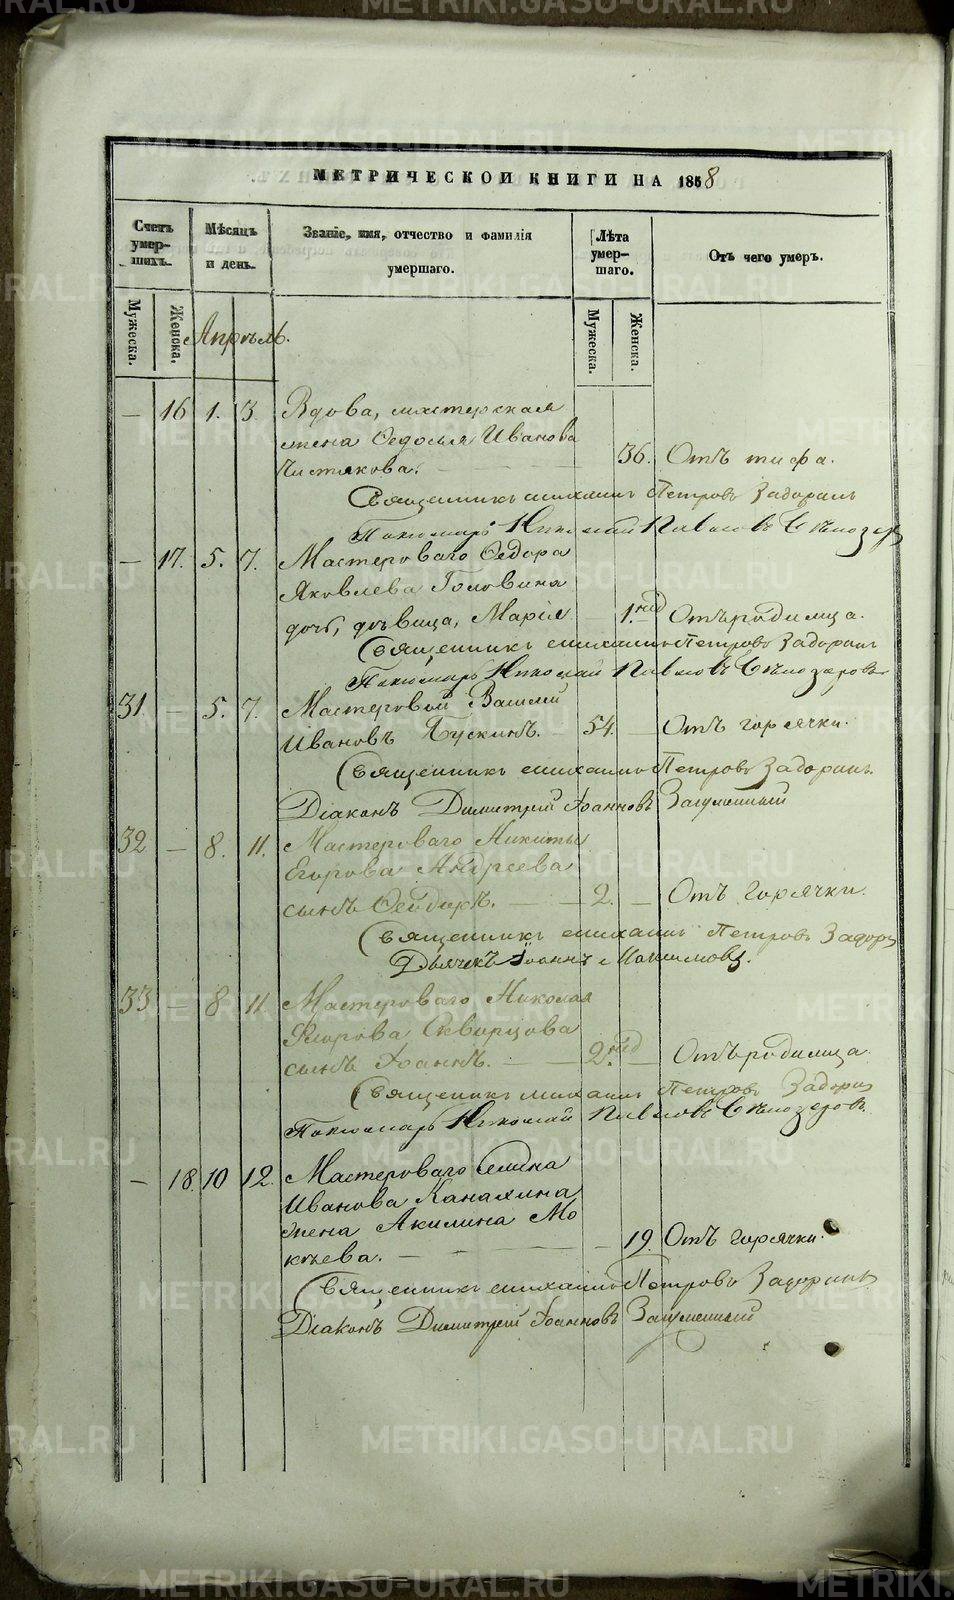 МЕТРИЧЕСКОЙ КНИГИ НА 1858
Счетъ умер-шихъ.
Мѣсяцъ и день.
Званіе, имя, отчество и фамилія умершаго.
Лѣта умер-шаго.
Отъ чего умеръ.
Мужеска.
Женска.
Апрѣль.
Мужеска.
Женска.
— 16 1. 3. Вдова, мастерская
жена Ѳедосья Иванова
Чистякова. 36. Отъ тифа.
Священникъ Михаилъ Петровъ Задоринъ
Пономарь Николай Павловъ
— 17. 5. 7. Мастероваго Ѳедора
Яковлева Головина
дочь, дѣвица, Марія 1. нед Отъ родимца.
Священникъ Михаилъ Петровъ Задоринъ
Пономарь Николай Павловъ
31 — 5. 7. Мастеровой Василий
Ивановъ 54. — Отъ горячки.
Священникъ Михаилъ Петровъ Задоринъ.
Діаконъ Димитрій Іоанновъ Загуменный
32 — 8. 11. Мастероваго Никиты
Егорова Андреева
сынъ Ѳеодоръ. 2. — Отъ горячки.
Священникъ Михаилъ Петровъ Задор
Дьячекъ Іоаннъ Максимовъ.
33 — 8 11. Мастероваго Николая
Скворцова
сынъ Іоаннъ. 2. нед — Отъ родимца.
Священникъ Михаилъ Петровъ Задорин
Пономарь Николай Павловъ
— 18. 10 12. Мастероваго
Иванова Канахина
жена Акилина Мо
кѣева. — 19. Отъ горячки.
Священникъ Михаилъ Петровъ Задоринъ
Діаконъ Димитрій Іоанновъ Загуменный
METRIKI.GASO-URAL.RU